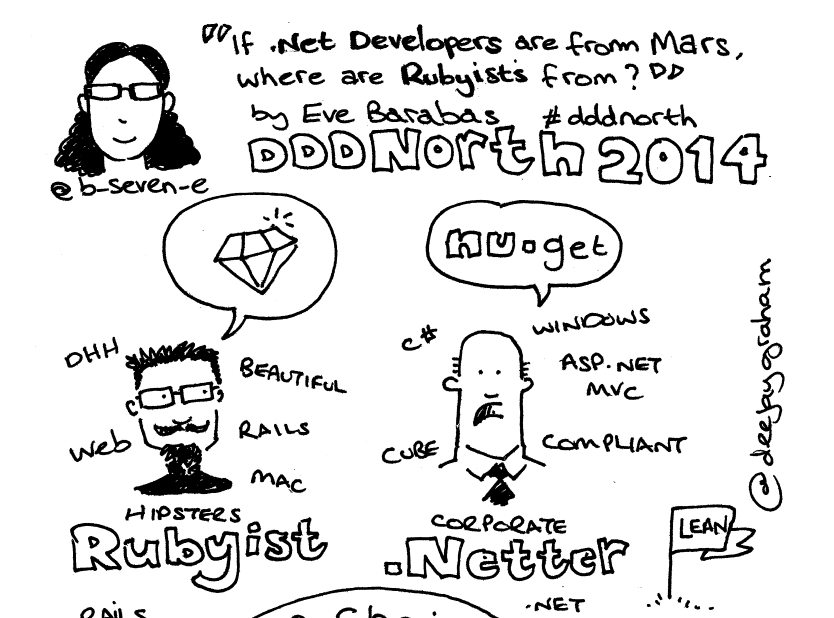 "If .Net Developers are from Mars,
where are Rubyists from?"
by Eve Barabas #dddnorth
DDDNorth 2014
@b-seven-e
nu.get
@deejaygraham
DHH
BEAUTIFUL
Web
RAILS
MAC
HIPSTERS
Rubyist
C#
WINDOWS
ASP.NET
MVC
CUBE
COMPLIANT
CORPORATE
.Netter
LEAN
RAILS
.NET